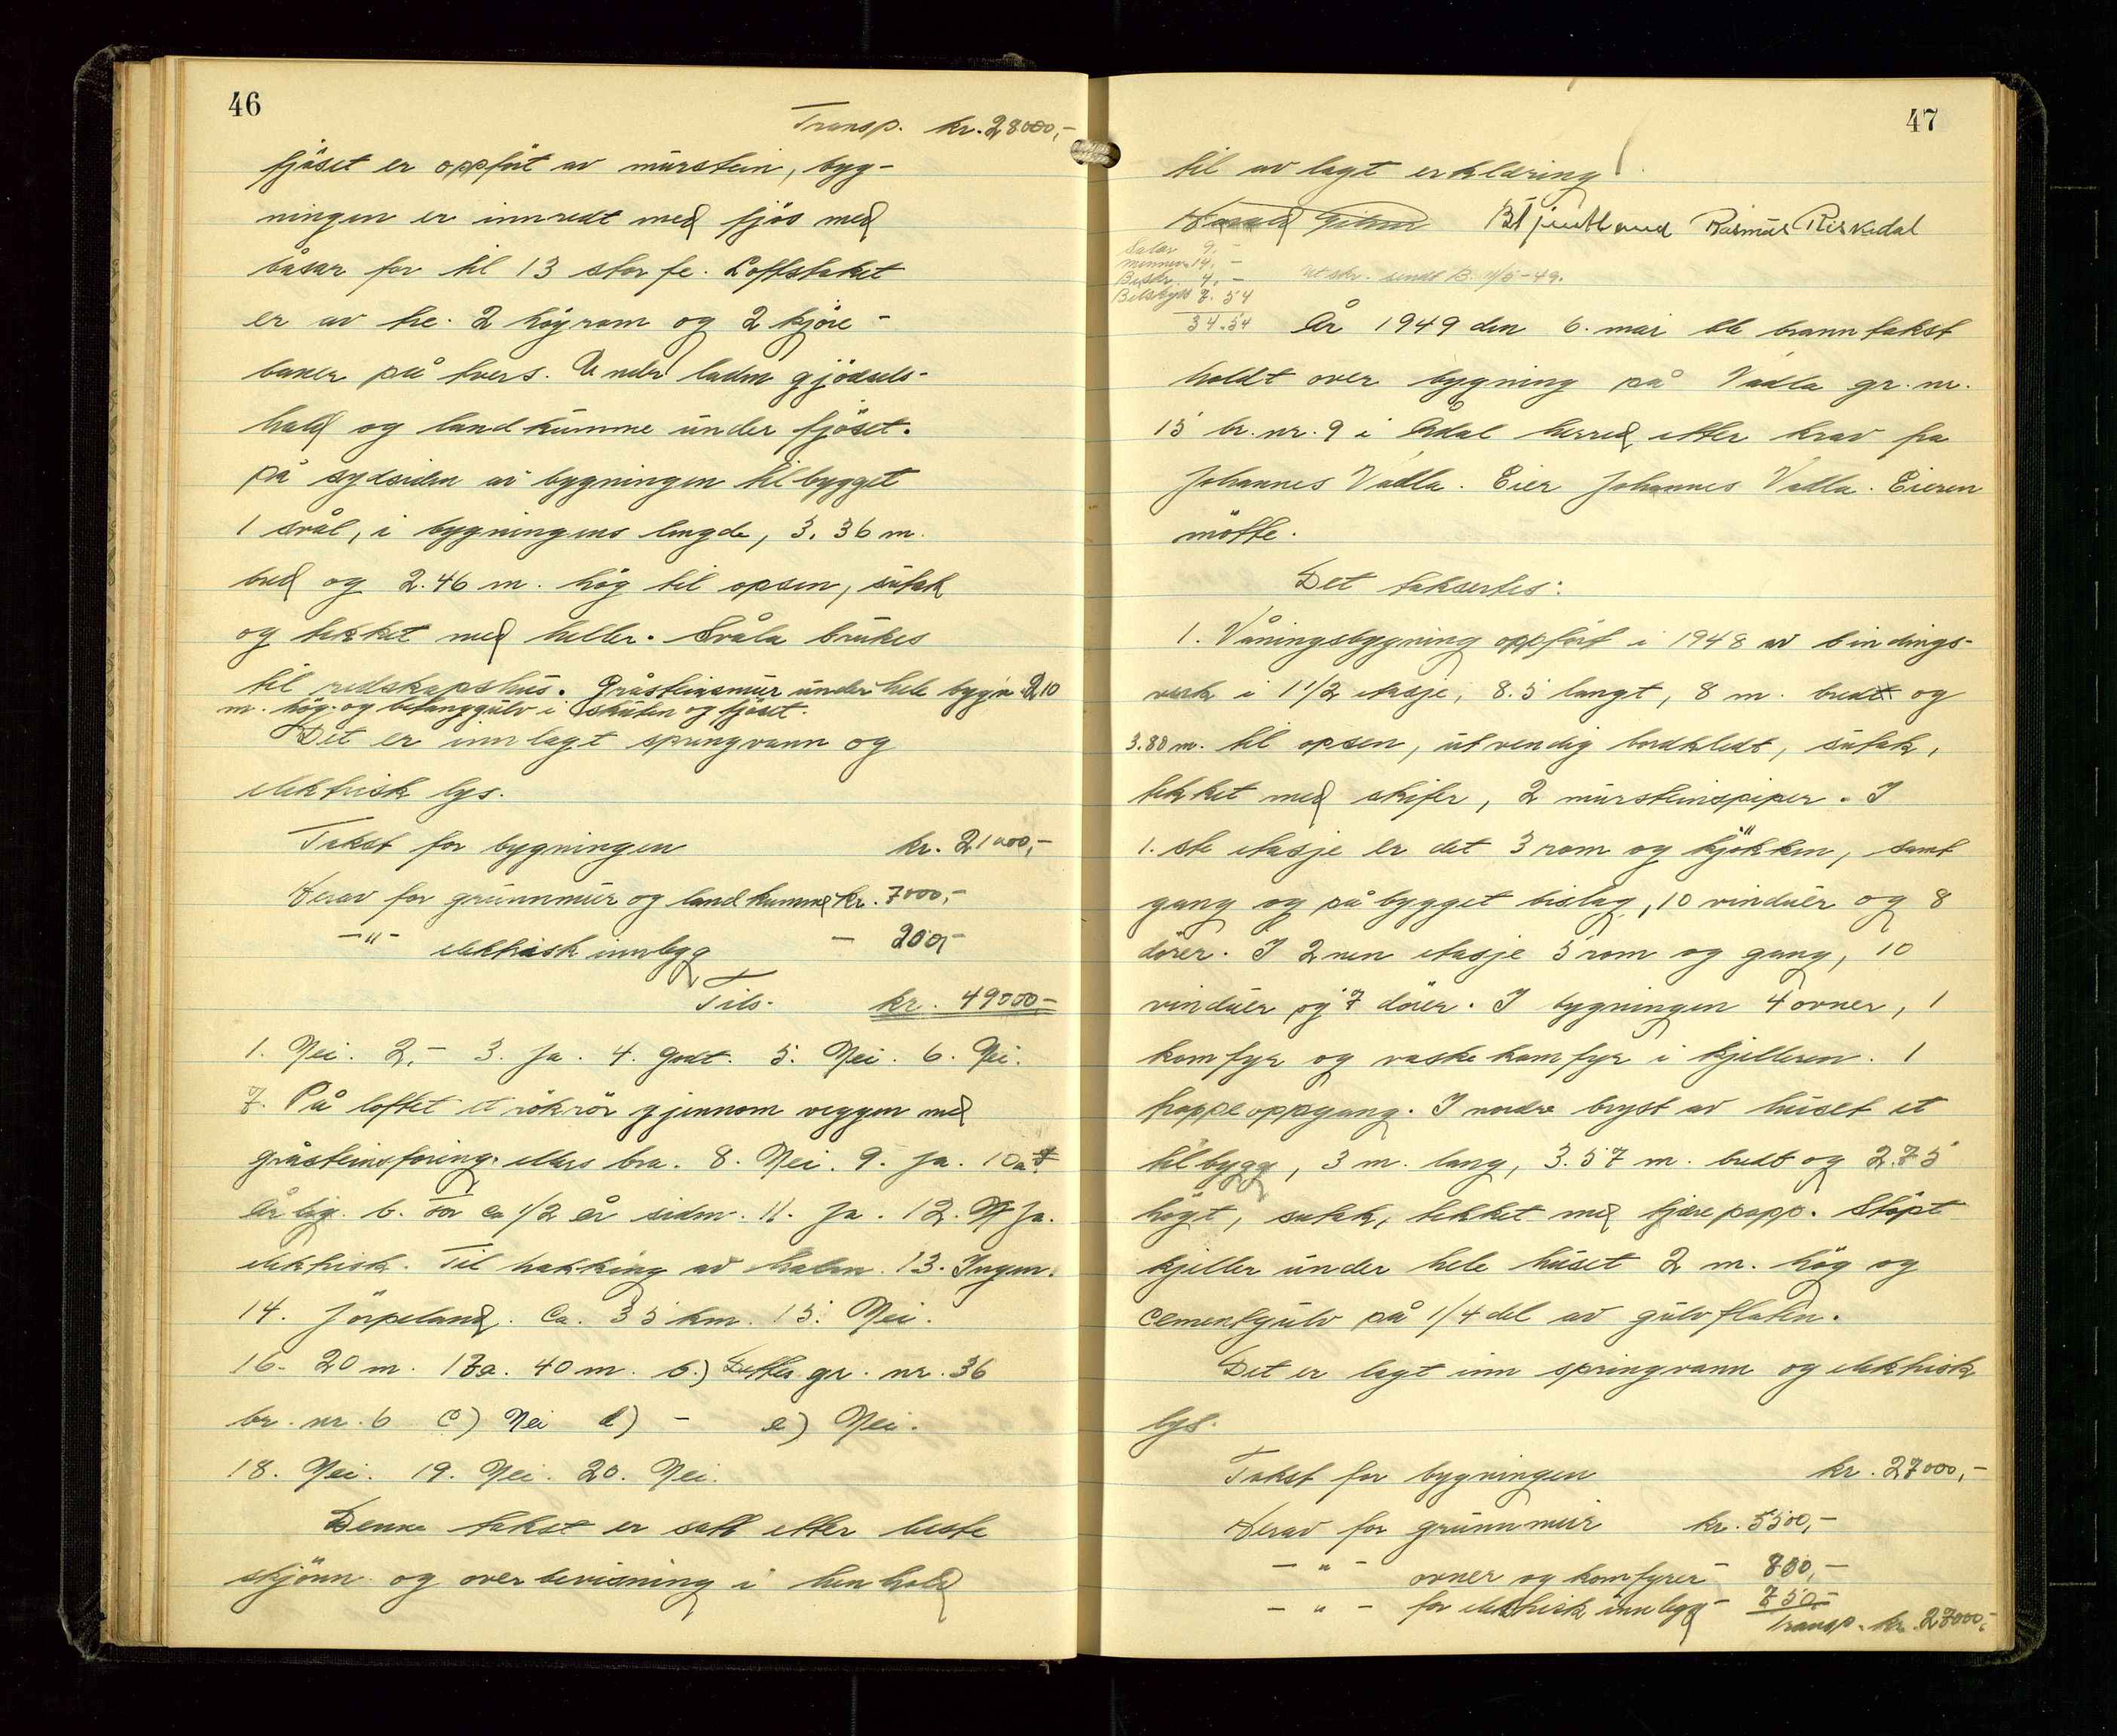 46
Transp. kr. 28000,-
fjöset er oppfört av murstein, byg-
ningen er innredt med fjös med
båsar for til 13 storfe. Loftstaket
er av tre. 2 högrom og 2 kjöre-
baner på tvers. Under laden gjödsels-
hald og landkumme under fjöset.
På sydsiden av bygningen tilbygget
1 svål, i bygningens lengde, 3.36 m.
bred og 2.46 m. hög til opsen, sutak
og tekket med heller. Svåla brukes
til redskapshus. Gråsteinsmur under hele bygn. 2,10
m. hög. og betonggulv i skuten og fjöset.
Det er innlagt springvann og
elektrisk lys.
Takst for bygningen kr. 21000,-
Herav for grunnmur og landkumme kr. 7000,-
-"- elektrisk innlegg - 200,-
Tils. kr. 49000-
1. Nei. 2.- 3. Ja. 4. Godt. 5. Nei. 6. Nei.
7. På loftet et rökrör gjennom veggen med
gråsteinsforing. ellers bra. 8. Nei. 9. Ja. 10a.
Årlig. b. for ca 1/2 år siden. 11. Ja. 12. Ja.
elektrisk. Til hakking av halm. 13. Ingen.
14. Jörpeland. Ca. 35 km. 15. Nei.
16. 20 m. 17a. 40 m. b.) Dette gr. nr. 36
br. nr. 6 c) Nei d) - e) Nei.
18. Nei. 19. Nei. 20. Nei.
Denne takst er satt etter beste
skjönn og overbevisning i henhold
47
til av lagt erklæring
Rasmus Riskedal
Salær 9. -
14. -
Beskr. 4. -
Bilskyss 7. 54
34.54
Utskr. sendt B. 9/5-49.
År 1949 den 6. mai ble branntakst
holdt over bygning på Vadla gr. nr.
15 br. nr. 9 i Årdal herred etter krav fra
Johannes Vadla. Eier Johannes Vadla. Eieren
mötte.
Det taksertes:
1. Våningsbygning oppfört i 1948 av bindings-
verk i 1 1/2 etasje, 8.5 langt, 8 m. bredt og
3.80 m. til opsen, utvendig bordkledt, sutak,
tekket med skifer, 2 mursteinspiper. I
1. ste etasje er det 3 rom og kjökken, samt
gang og påbygget bislag, 10 vinduer og 8
dörer. I 2nen etasje 5 rom og gang, 10
vinduer og 7 dörer. I bygningen 4 ovner, 1
komfyr og vaskekomfyr i kjelleren. 1
trappeoppgang. I nordre bryst av huset et
tilbygg, 3 m. lang, 3.57 m. bredt og 2.75
högt, sutak, tekket med tjærepapp. Stöpt
kjeller under hele huset 2 m. hög og
cementgulv på 1/4 del av gulvflaten.
Det er lagt inn springvann og elektrisk
lys.
Takst for bygningen kr. 27000,-
Herav for grunnmur kr. 5500,-
- " - ovner og komfyrer - 800,-
- " - for elektrisk innlegg - 750,-
Transp. kr. 27000,-